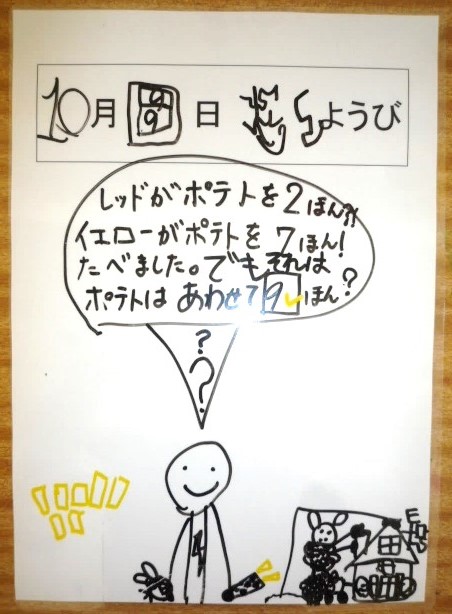 10月 9 日 ようび
レッドがポテトを2ほん?!
イエローがポテトを7ほん!
たべました。でもそれは
ポテトはあわせて9ほん?
?
?